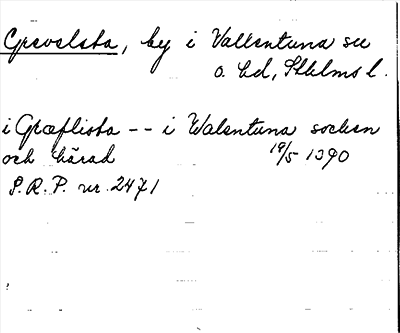 Grevelsta, by i Vallentuna sn
o. hd, Sthlms l.
i Græflista -- i Walentuna socken
och härad 18/5 1390
S.R.P. nr 2471